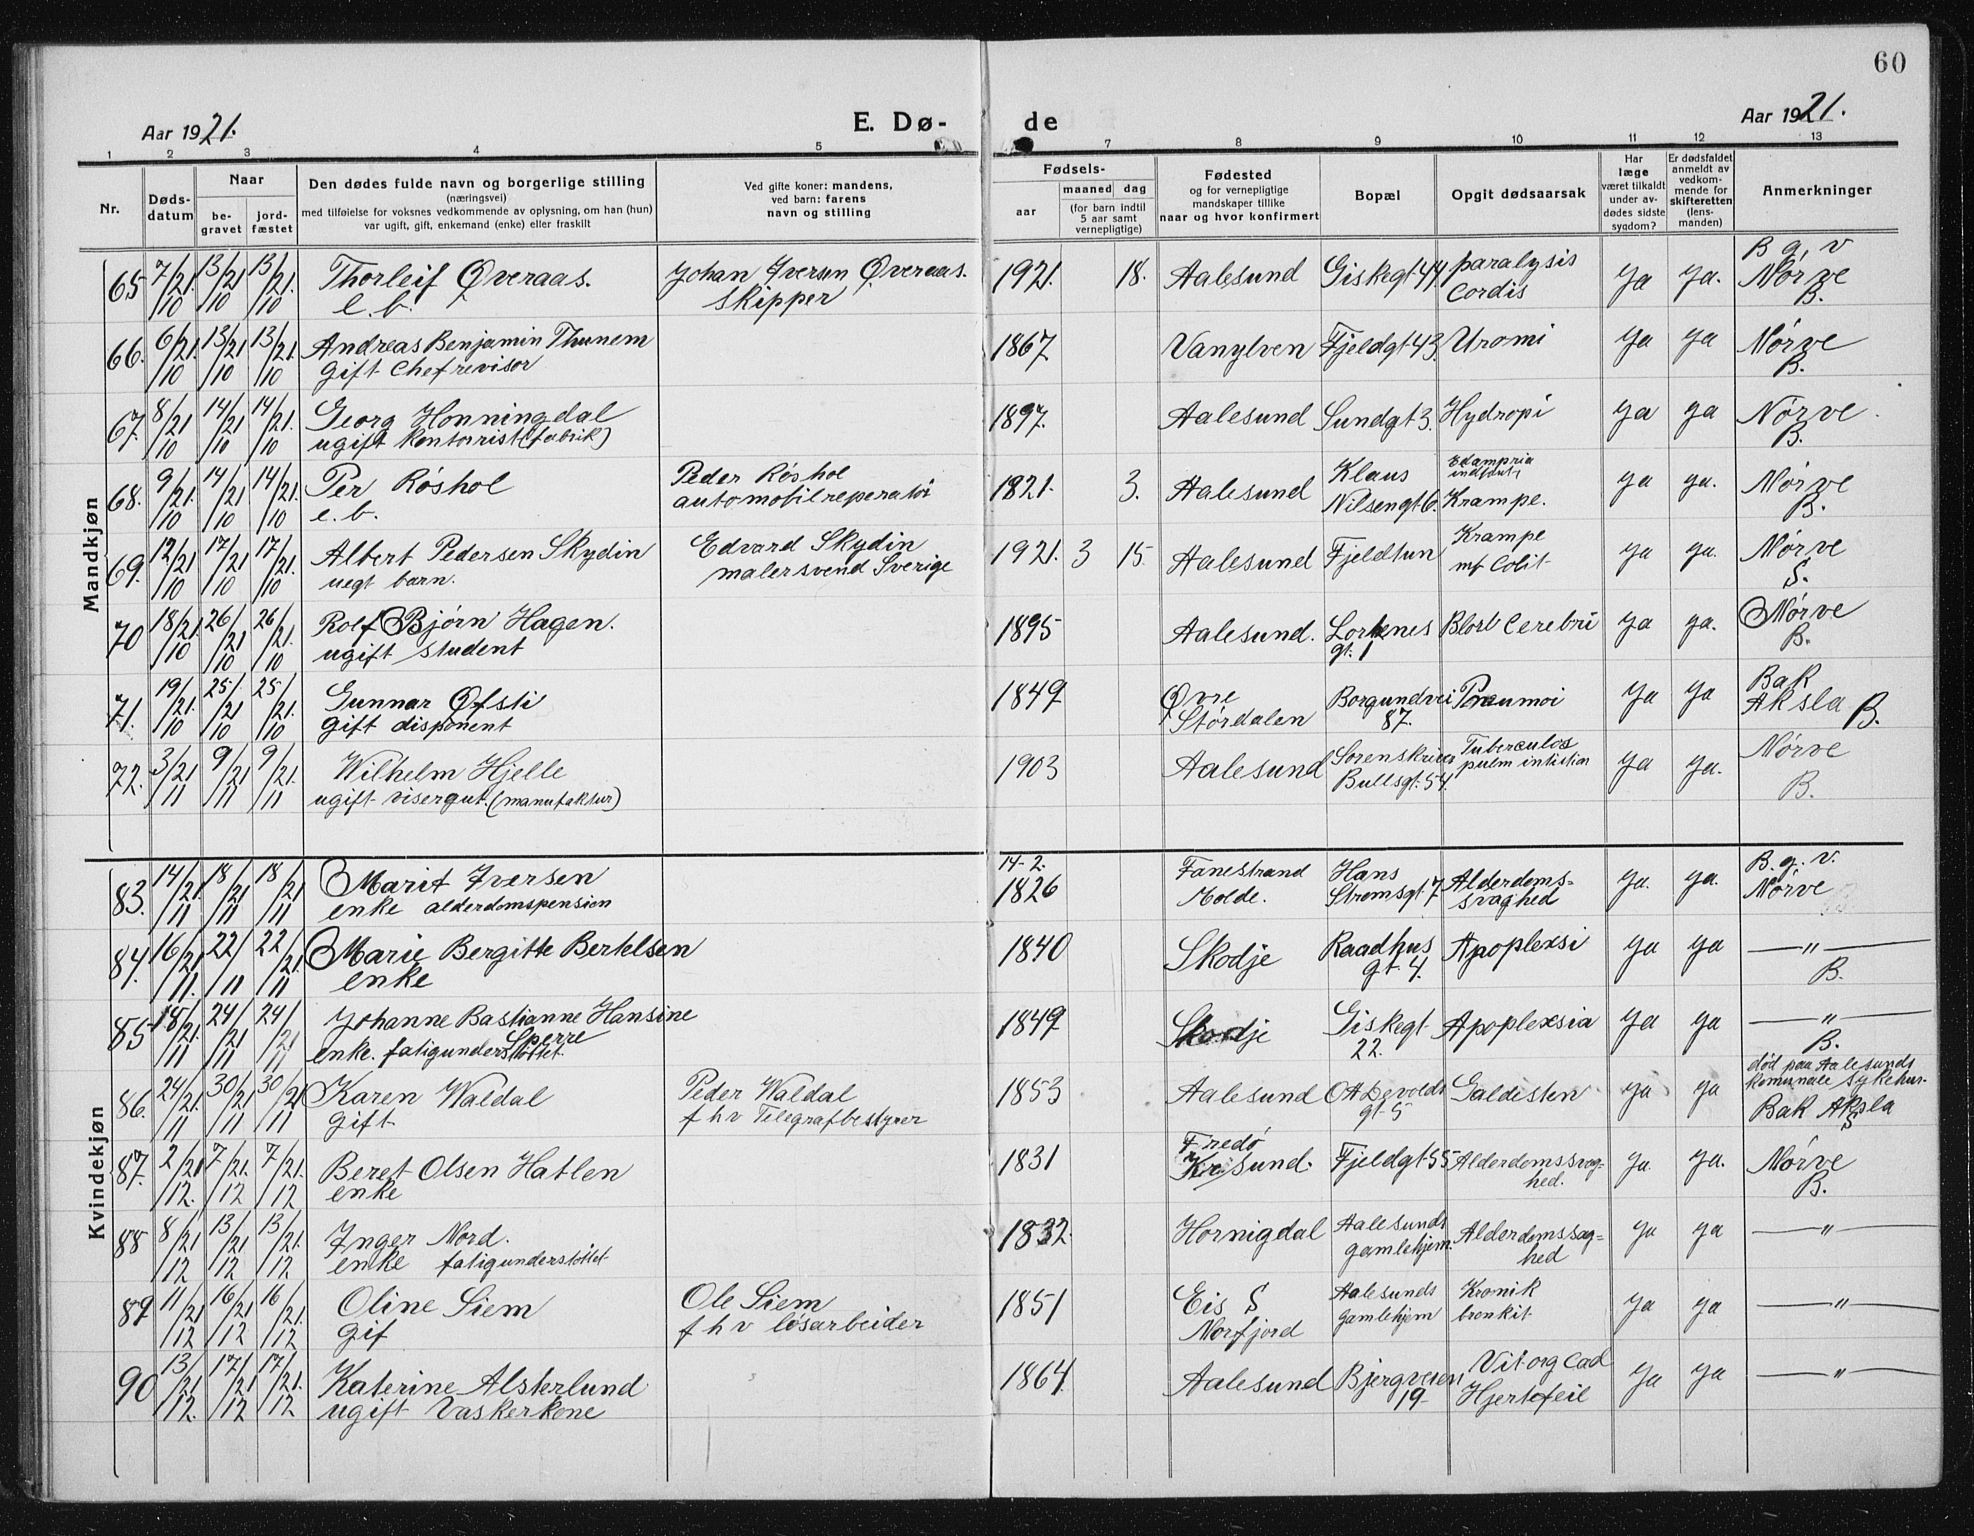 60
Aar 1921.
E. Dø-
de
Aar 1921.
1 2 3 4 5 7 8 9 10 11 12 13
Nr.
Døds-
datum
Naar
be-
gravet
jord-
fæstet
Den dødes fulde navn og borgerlige stilling
(næringsvei)
med tilføielse for voksnes vedkommende av oplysning, om han (hun)
var ugift, gift, enkemand (enke) eller fraskilt
Ved gifte koner: mandens,
ved barn: farens
navn og stilling
Fødsels-
aar
maaned dag
(for barn indtil
5 aar samt
vernepligtige)
Fødested
og for vernepligtige
mandskaper tillike
naar og hvor konfirmert
Bopæl
Opgit dødsaarsak
Har
læge
været tilkaldt
under av-
dødes sidste
sygdom?
Er dødsfaldet
anmeldt av
vedkom-
mende for
skifteretten
(lens-
manden)
Anmerkninger
Mandkjøn
65 7/10 21 13/10 21 13/10 21. Thorleif Øveraas. Johan Iversen Øveraas. 1921. 18. Aalesund Giskegt 44 paralysis Ja Ja. B g. v
e. b. skipper Cordis Nørve
B.
66. 6/10 21. 13/10 21 13/10 21. Andreas Benjamin Thunem 1867. Vanylven Fjeldgt 43 Uromi Ja Ja Nørve
gift Chefrevisor B.
67. 8/10 21 14/10 21 14/10 21. Georg Honningdal 1897. Aalesund Sundgt 3. Hydropi Ja Ja Nørve.
ugift kontorrist (fabrik) B.
68. 9/10 21. 14/10 21 14/10 21. Per Røshol Peder Røshol 1821. 3. Aalesund Klaus Ja Ja. Nørve
e. b. automobilreperatør Nilsengt 6. Krampe. B.
69. 12/10 21 17/10 21 17/10 21. Albert Pedersen Skydin Edvard Skydin 1921. 3 15. Aalesund Fjeldtun Krampe Ja Ja. Nørve
uegt barn. malersvend Sverige Colit S.
70 18/10 21 26/10 21 26/10 21. Rolf Bjørn Hagen. 1895 Aalesund. Lorkenes Cerebri Ja Ja. Nørve
ugift student gt. 1 B.
71. 19/10 21. 25/10 21 25/10 21. Gunnar Øfsti 1849 Øvre Borgundvei Pneumoi Ja Ja Bak
gift disponent Størdalen 87. Aksla B.
72. 3/11 21 9/11 21 9/11 21. Wilhelm Hjelle 1903 Aalesund Sorenskriver Tuberculos Ja Ja. Nørve
ugift visergut. (manufaktur) Bullsgt. 54. pulm B.
Kvindekjøn
83. 14/11 21. 18/11 21 18/11 21 Marit Iversen 14-2. 1826 Fanestrand Hans Alderdoms- Ja. Ja. B. g. v.
enke alderdomspension Molde. Stromsgt 7 svaghed Nørve
84. 16/11 21. 22/11 22/11 21. Marie Bergitte Bertelsen 1840 Skodje Raadhus Apoplexsi Ja Ja —"—
enke gt. 4. B.
85 18/11 21. 24/11 21 24/11 21 Johanne Bastianne Hansine 1849 Skodje Giskegt Apoplexsia Ja Ja —"—
Sperre
enke. fatigunderstøttet. 22. B.
86. 24/11 21. 30/11 21 30/11 21 Karen Waldal Peder Waldal 1853 Aalesund O A Devolds Galdesten Ja Ja død paa Aalesunds
gift f h v Telegrafbestyrer gt 5 komunale sykehus.
Bak Aksla
S
87. 2/12 21 7/12 21. 7/12 21. Beret Olsen Hatlen 1831 Fredø Fjeldgt 55 Alderdomssvag- Ja. Ja. Nørve
enke Kr.sund. hed. B.
88 8/12 21 13/12 21 13/12 21. Inger Nord. 1832. Hornigdal Aalesunds Alderdomssag- Ja Ja —"—
enke fatigunderstøttet gamlehjem. hed
89 11/12 21 16/12 21 16/12 21. Oline Siem Ole Siem 1851 Eis S Aalesunds Kronik Ja Ja —"—
gif f h v løsarbeider Norfjord gamlehjem bronkit
90 13/12 21 17/12 21 17/12 21. Katerine Alsterlund 1864. Aalesund Bjergveien Vit. org Cad Ja Ja —"—
ugift Vaskerkone 19 Hjertefeil